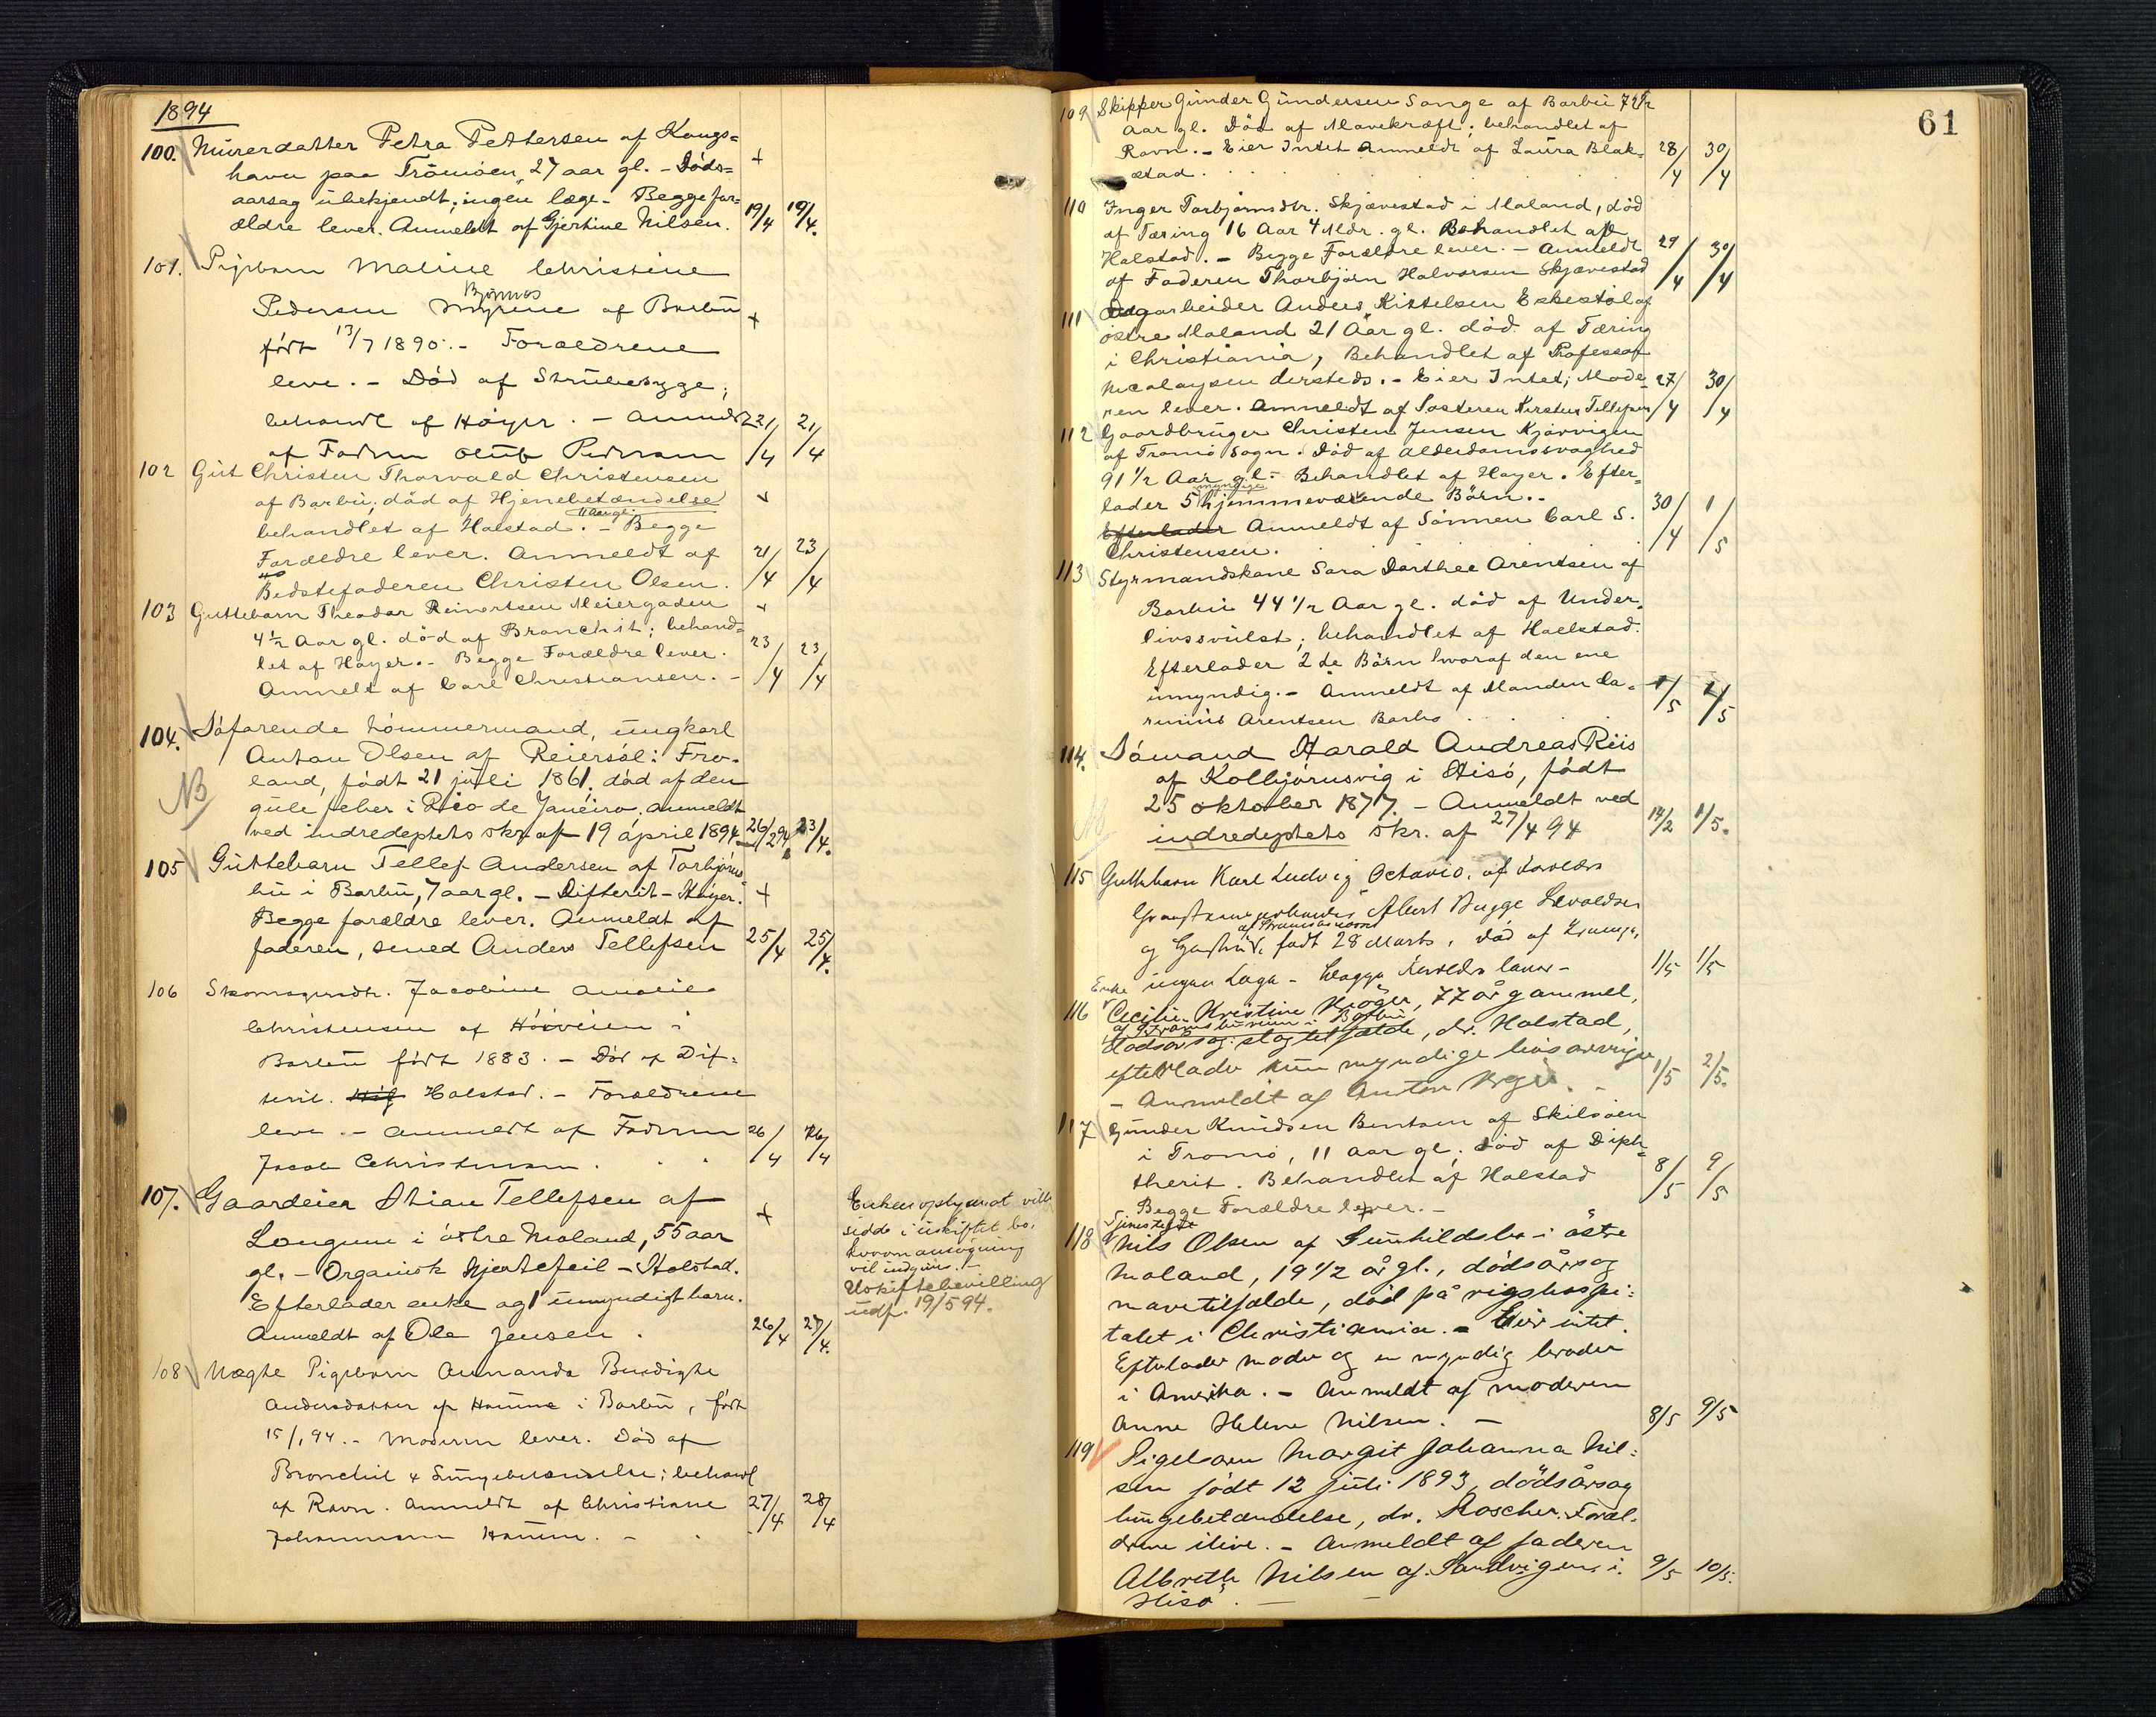 1894
100. Murerdatter Petra Pettersen af Kongs=
havn paa Tromöen, 27 aar gl. - Döds= +
aarsag ubekjendt; ingen læge - Begge for=
ældre lever. Anmeldt af Gjertine Nilsen. 19/4 19/4.
101. Pigebarn Maline Christine
Bjønnes
Pedersen Myrene af Barbu +
født 13/7 1890. - Forældrene
leve. - Död af Strubesyge;
behandl af Höyer. - Anmeldt 21/4 21/4
af Faderen Oluf Pedersen
102 Gut Christen Thorvald Christensen
af Barbu; död af Hjernebetændelse
11 Aar gl.
behandlet af Halstad. - Begge
Forældre lever. Anmeldt af 21/4 23/4
Bedstefaderen Christen Olsen.
103 Guttebarn Theodor Reinertsen Meiergaden
4 1/2 Aar gl. död af Bronchit; behand=
let af Høyer. - Begge Forældre lever. 23/4 23/4
Anmeldt af Carl Christiansen. -
104. Söfarende tömmermand, ungkarl
Anton Olsen af Reiersöl i Fro-
NB land, födt 21 juli 1861, död af den
gule feber i Rio de Janeiro, anmeldt
ved indredeptets skr. af 19 april 1894. 26/2 94. 23/4.
105 Guttebarn Tellef Andersen af Torbjörns
bu i Barbu, 7 aar gl. - Difterit - Höyer. +
Begge forældre lever. Anmeldt af
faderen, smed Anders Tellefsen 25/4 25/4.
106 Skomagerdtr. Jacobine Amalie
Christensen af Höiveien i
Barbu født 1883. - Död af Dif-
terit. Halstad. - Forældrene
leve. - Anmeldt af Faderen 26/4 26/4
Jacob Christensen.
107. Gaardeier Stian Tellefsen af +
Longum i östre Moland, 55 aar
gl. - Organisk hjertefeil - Halstad.
Efterlader enke og 1 umyndigt barn.
Anmeldt af Ole Jensen. 26/4 27/4.
Enken oplyst at ville
sidde i uskiftet bo,
hvorom ansögning
vil indgives. -
Uskiftebevilling
udf. 19/5 94.
108 Uægte Pigebarn Amanda Bendigte
Andersdatter af Hamme i Barbu, født
15/1 94. - Moderen lever. Död af
Bronchit & Lungebetændelse; behandl
af Ravn. Anmeldt af Christiane 27/4 28/4
Johannesen Hamme. -
61
109 Skipper Gunder Gundersen Songe af Barbu 72 1/2
Aar gl. Död af Mavekræft; behandlet af
Ravn. - Eier Intet Anmeldt af Laura Blak- 28/4 30/4
stad.
110 Inger Torbjørnsdtr. Skjævestad i Moland, död
af Tæring 16 Aar 4 Mdr. gl. Behandlet af
Halstad. - Begge Forældre lever. - Anmeldt 29/4 30/4
af Faderen Thorbjørn Halvorsen Skjævestad
111 Dagarbeider Anders Kittelsen Eskestøl af
østre Moland 21 Aar gl. död af Tæring
i Christiania, Behandlet af Professor
Nicolaysen dersteds. - Eier Intet; Mode- 27/4 30/4
ren lever. Anmeldt af Søsteren Kirsten Tellefsen
112 Gaardbruger Christen Jensen Kjørvigen
af Tromø Sogn. Död af Alderdomssvaghed
91 1/2 Aar gl. - Behandlet af Høyer. Efter-
myndige
lader 5 hjemmeværende Börn. -
Efterlader Anmeldt af Sönnen Carl S. 30/4 1/5
Christensen.
113 Styrmandskone Sara Dorthee Arentsen af
Barbu 44 1/2 Aar gl. död af Under-
livssvulst; behandlet af Halstad.
Efterlader 2de Börn hvoraf den ene
umyndig. - Anmeldt af Manden La- 1/5 1/5
runius Arentsen Barbo
114. Sömand Harald Andreas Riis
af Kolbjörnsvig i Hisö, födt
25 oktober 1877. - Anmeldt ved
indredeptets skr. af 27/4 94 14/2 1/5.
115 Guttebarn Karl Ludvig Octavio, af Forældre
Albert Bugge Levoldsen
af Strømsbunesset
og født 28 Marts, Død af Krampe,
ingen Læge - Begge Forældre lever - 1/5 1/5
Enke
116 Cecilie Kristine Kroger, 77 år gammel,
af Strømsbuneien i Barbu
dødsårsag: slagtilfælde, dr. Halstad,
efterlader kun myndige livsarvinger 1/5 2/5.
- Anmeldt af Anton Kroger. -
117 Gunder Knudsen Berntsen af Skilsøen
i Tromø, 11 Aar gl. død af Diph-
therit. Behandlet af Halstad 8/5 9/5
Begge Forældre lever. -
Tjenestegut
118 Nils Olsen af Gunhildsbo i østre
Moland, 19 1/2 år gl., dødsårsag
mavetilfælde, død på rigshospi-
talet i Christiania. - Eier intet.
Efterlader moder og en myndig broder
i Amerika. - Anmeldt af moderen
Anne Helene Nilsen. - 8/5 9/5
119 Pigebarn Margit Johanna Nil-
sen født 12 juli 1893, dødsårsag
lungebetændelse, dr. Roscher. Foræl-
drene ilive. - Anmeldt af faderen
Albreth Nilsen af Sandvigen i 9/5 10/5.
Hisø. -